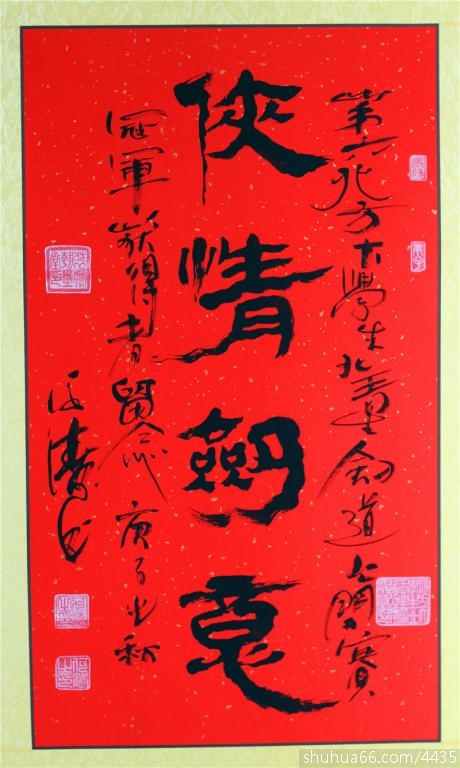 第六北方大學生北星劍道公開賽
俠情劍意
冠軍獲得者留念 庚子之秋
shuhua66.com/4435